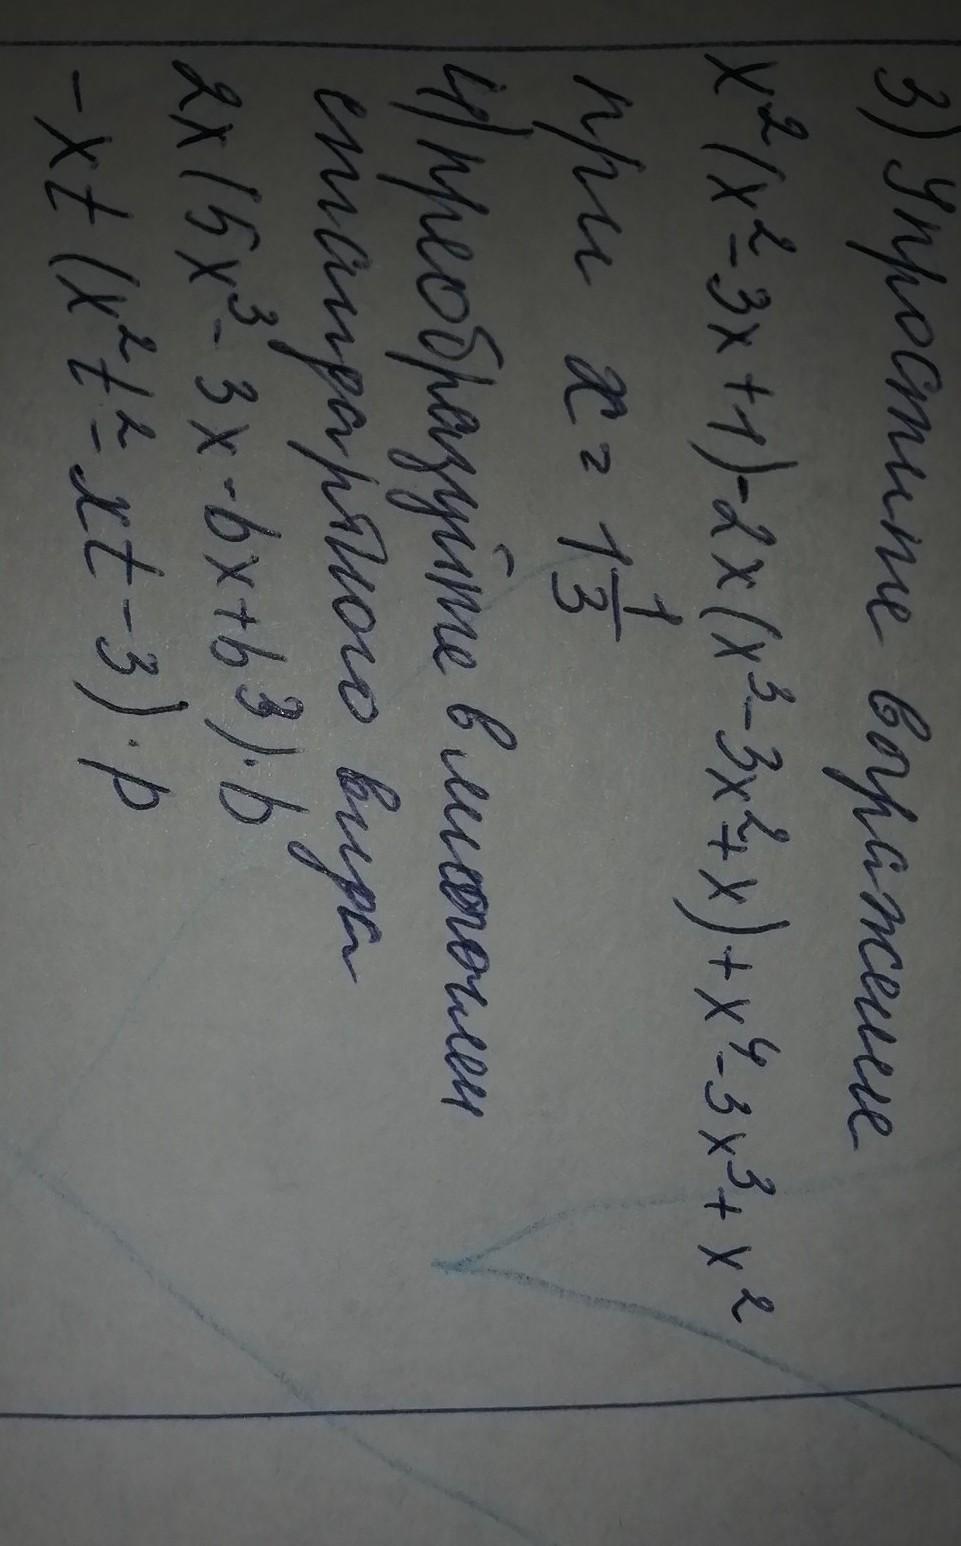 3) Упростите выражение
x²(x²-3x+1)-2x(x³-3x²+x)+x⁴-3x³+x²
при x = 1 1/3
4) преобразуйте в многочлен
стандартного вида
2x(5x³-3x-bx+b³)·b
-xt(x²t²-xt-3)·p